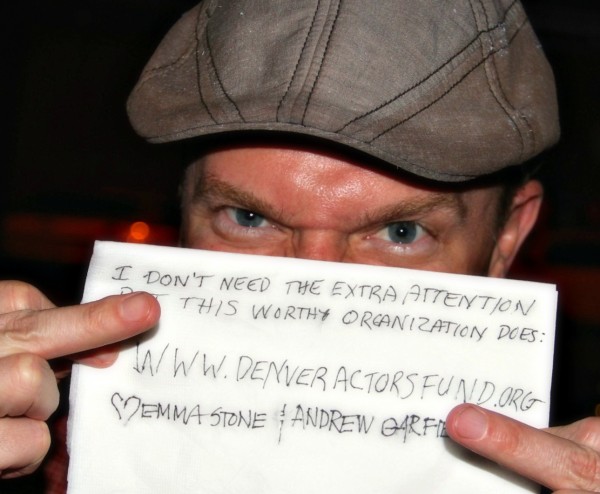 I DON'T NEED THE EXTRA ATTENTION
THIS WORTHY ORGANIZATION DOES:
WWW.DENVERACTORSFUND.ORG
♡EMMA STONE & ANDREW